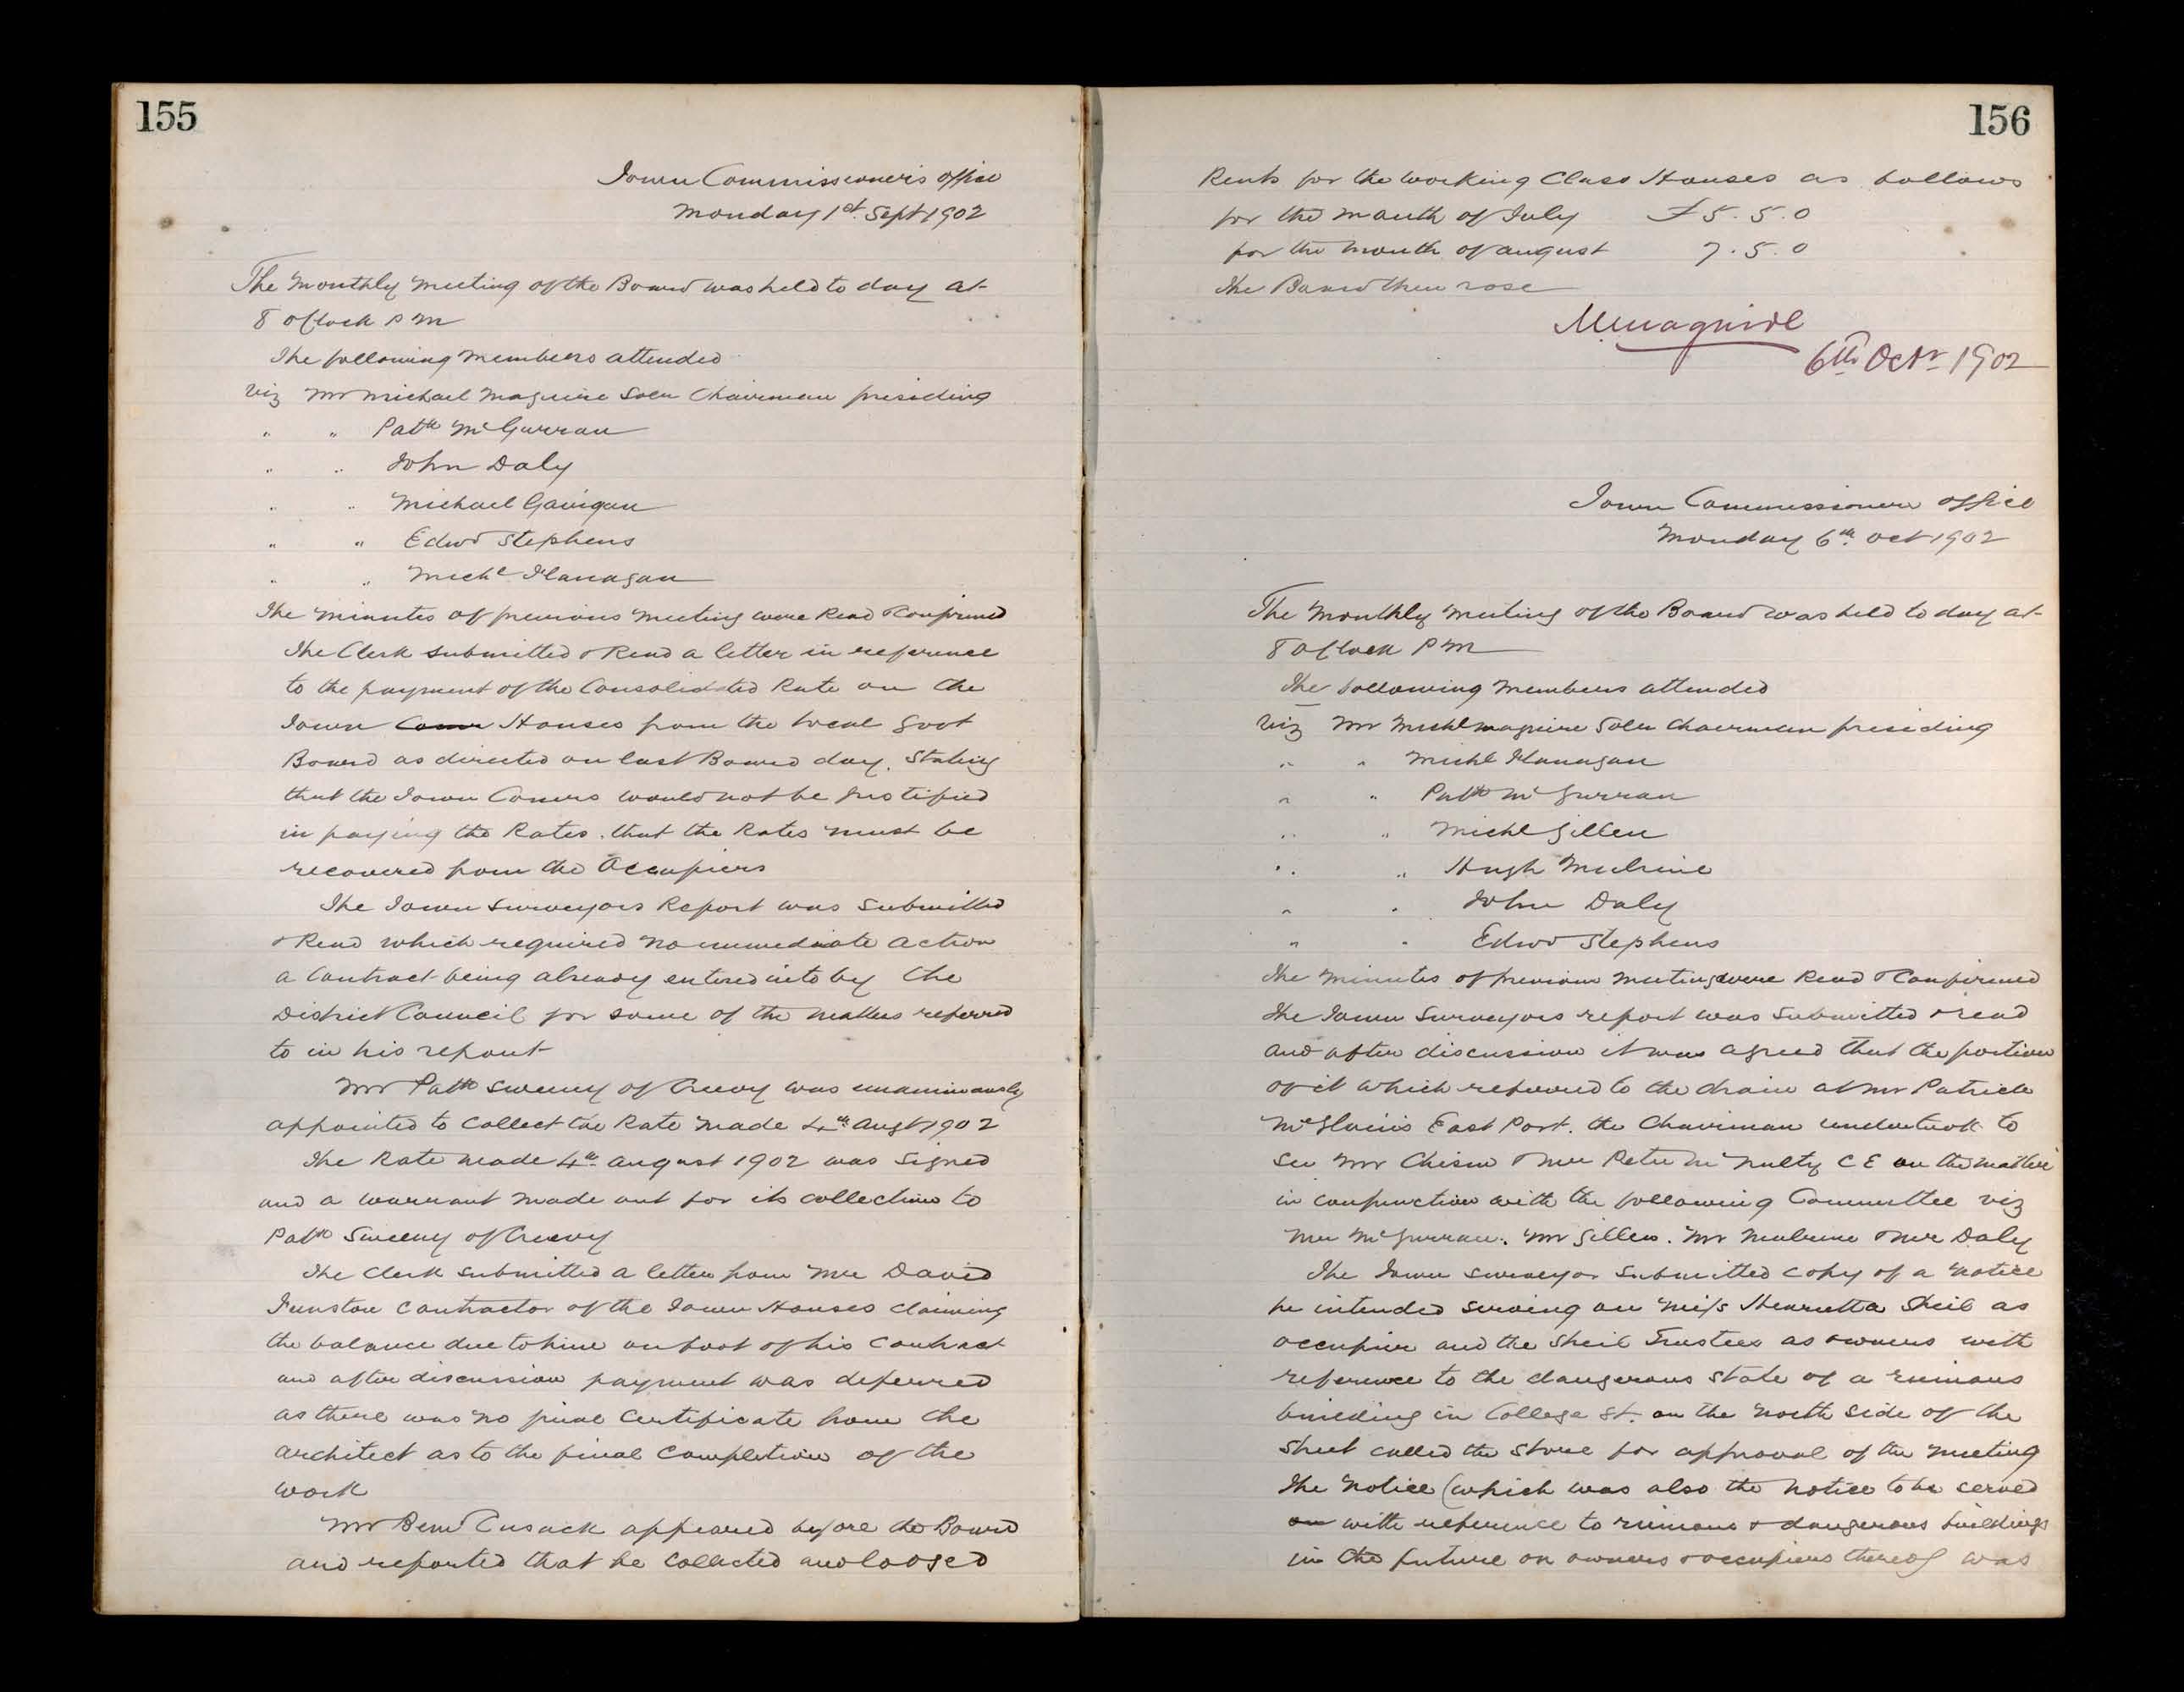 155
Town Commissioners office
Monday 1st Sept 1902
The Monthly Meeting of the Board was held to day at
8 oClock P M
The following Members attended
Viz Mr Michael Maguire Solr Chairman presiding
" " Patk McGurran
" " John Daly
" " Michael Gavigan
" " Edwd Stephens
" " Michl Flanagan
The Minutes of previous Meeting were Read & Confirmed
The Clerk submitted & Read a letter in reference
to the payment of the Consolidated Rate on the
Town Comr Houses from the Local Govt
Board as directed on last Board day. Stating
that the Town Comrs would not be justified
in paying the Rates. that the Rates must be
recovered from the Occupiers
The Town Surveyors Report was Submitted
& Read which required no immediate action
a Contract being already entered into by the
District Council for some of the matters referred
to in his report
Mr Patk Sweeny of Creevy was unanimously
appointed to Collect the Rate Made 4th Augt 1902
The Rate made 4th August 1902 was Signed
and a warrant made out for its collection to
Patk Sweeny of Creevy
The Clerk submitted a letter from Mr David
Funston Contractor of the Town Houses claiming
the balance due to him on foot of his Contract
and after discussion payment was deferred
as there was no final Certificate from the
architect as to the final Completion of the
work
Mr Bernd Cusack appeared before the Board
and reported that he Collected and lodged
156
Rents for the working Class Houses as follows
for the month of July £5.5.0
for the month of august 7.5.0
The Board then rose
M. Maguire
6th Octr 1902
Town Commissioners office
Monday 6th Oct 1902
The Monthly Meeting of the Board was held to day at
8 oClock P M
The following Members attended
Viz Mr Michl Maguire Solr Chairman presiding
" " Michl Flanagan
" " Patk McGurran
" " Michl Gillen
" " Hugh Mulrine
" " John Daly
" " Edwd Stephens
The Minutes of previous Meeting were Read & Confirmed
The Town Surveyors report was Submitted & read
and after discussion it was agreed that the portion
of it which referred to the drain at Mr Patrick
East Port. the Chairman undertook to
See Mr Chism & Mr Peter McNulty C E on the matter
in conjunction with the following Committee viz
Mr McGurran. Mr Gillen. Mr Mulrine & Mr Daly
The Town Surveyor Submitted Copy of a Notice
he intended serving on Miss Henrietta Sheil as
occupier and the Sheil Trustees as owners with
reference to the dangerous state of a ruinous
building in College St. on the North Side of the
Street called the Store for approval of the Meeting
The Notice (which was also the notice to be served
on with reference to ruinous & dangerous buildings
in the future on owners & occupiers thereof was